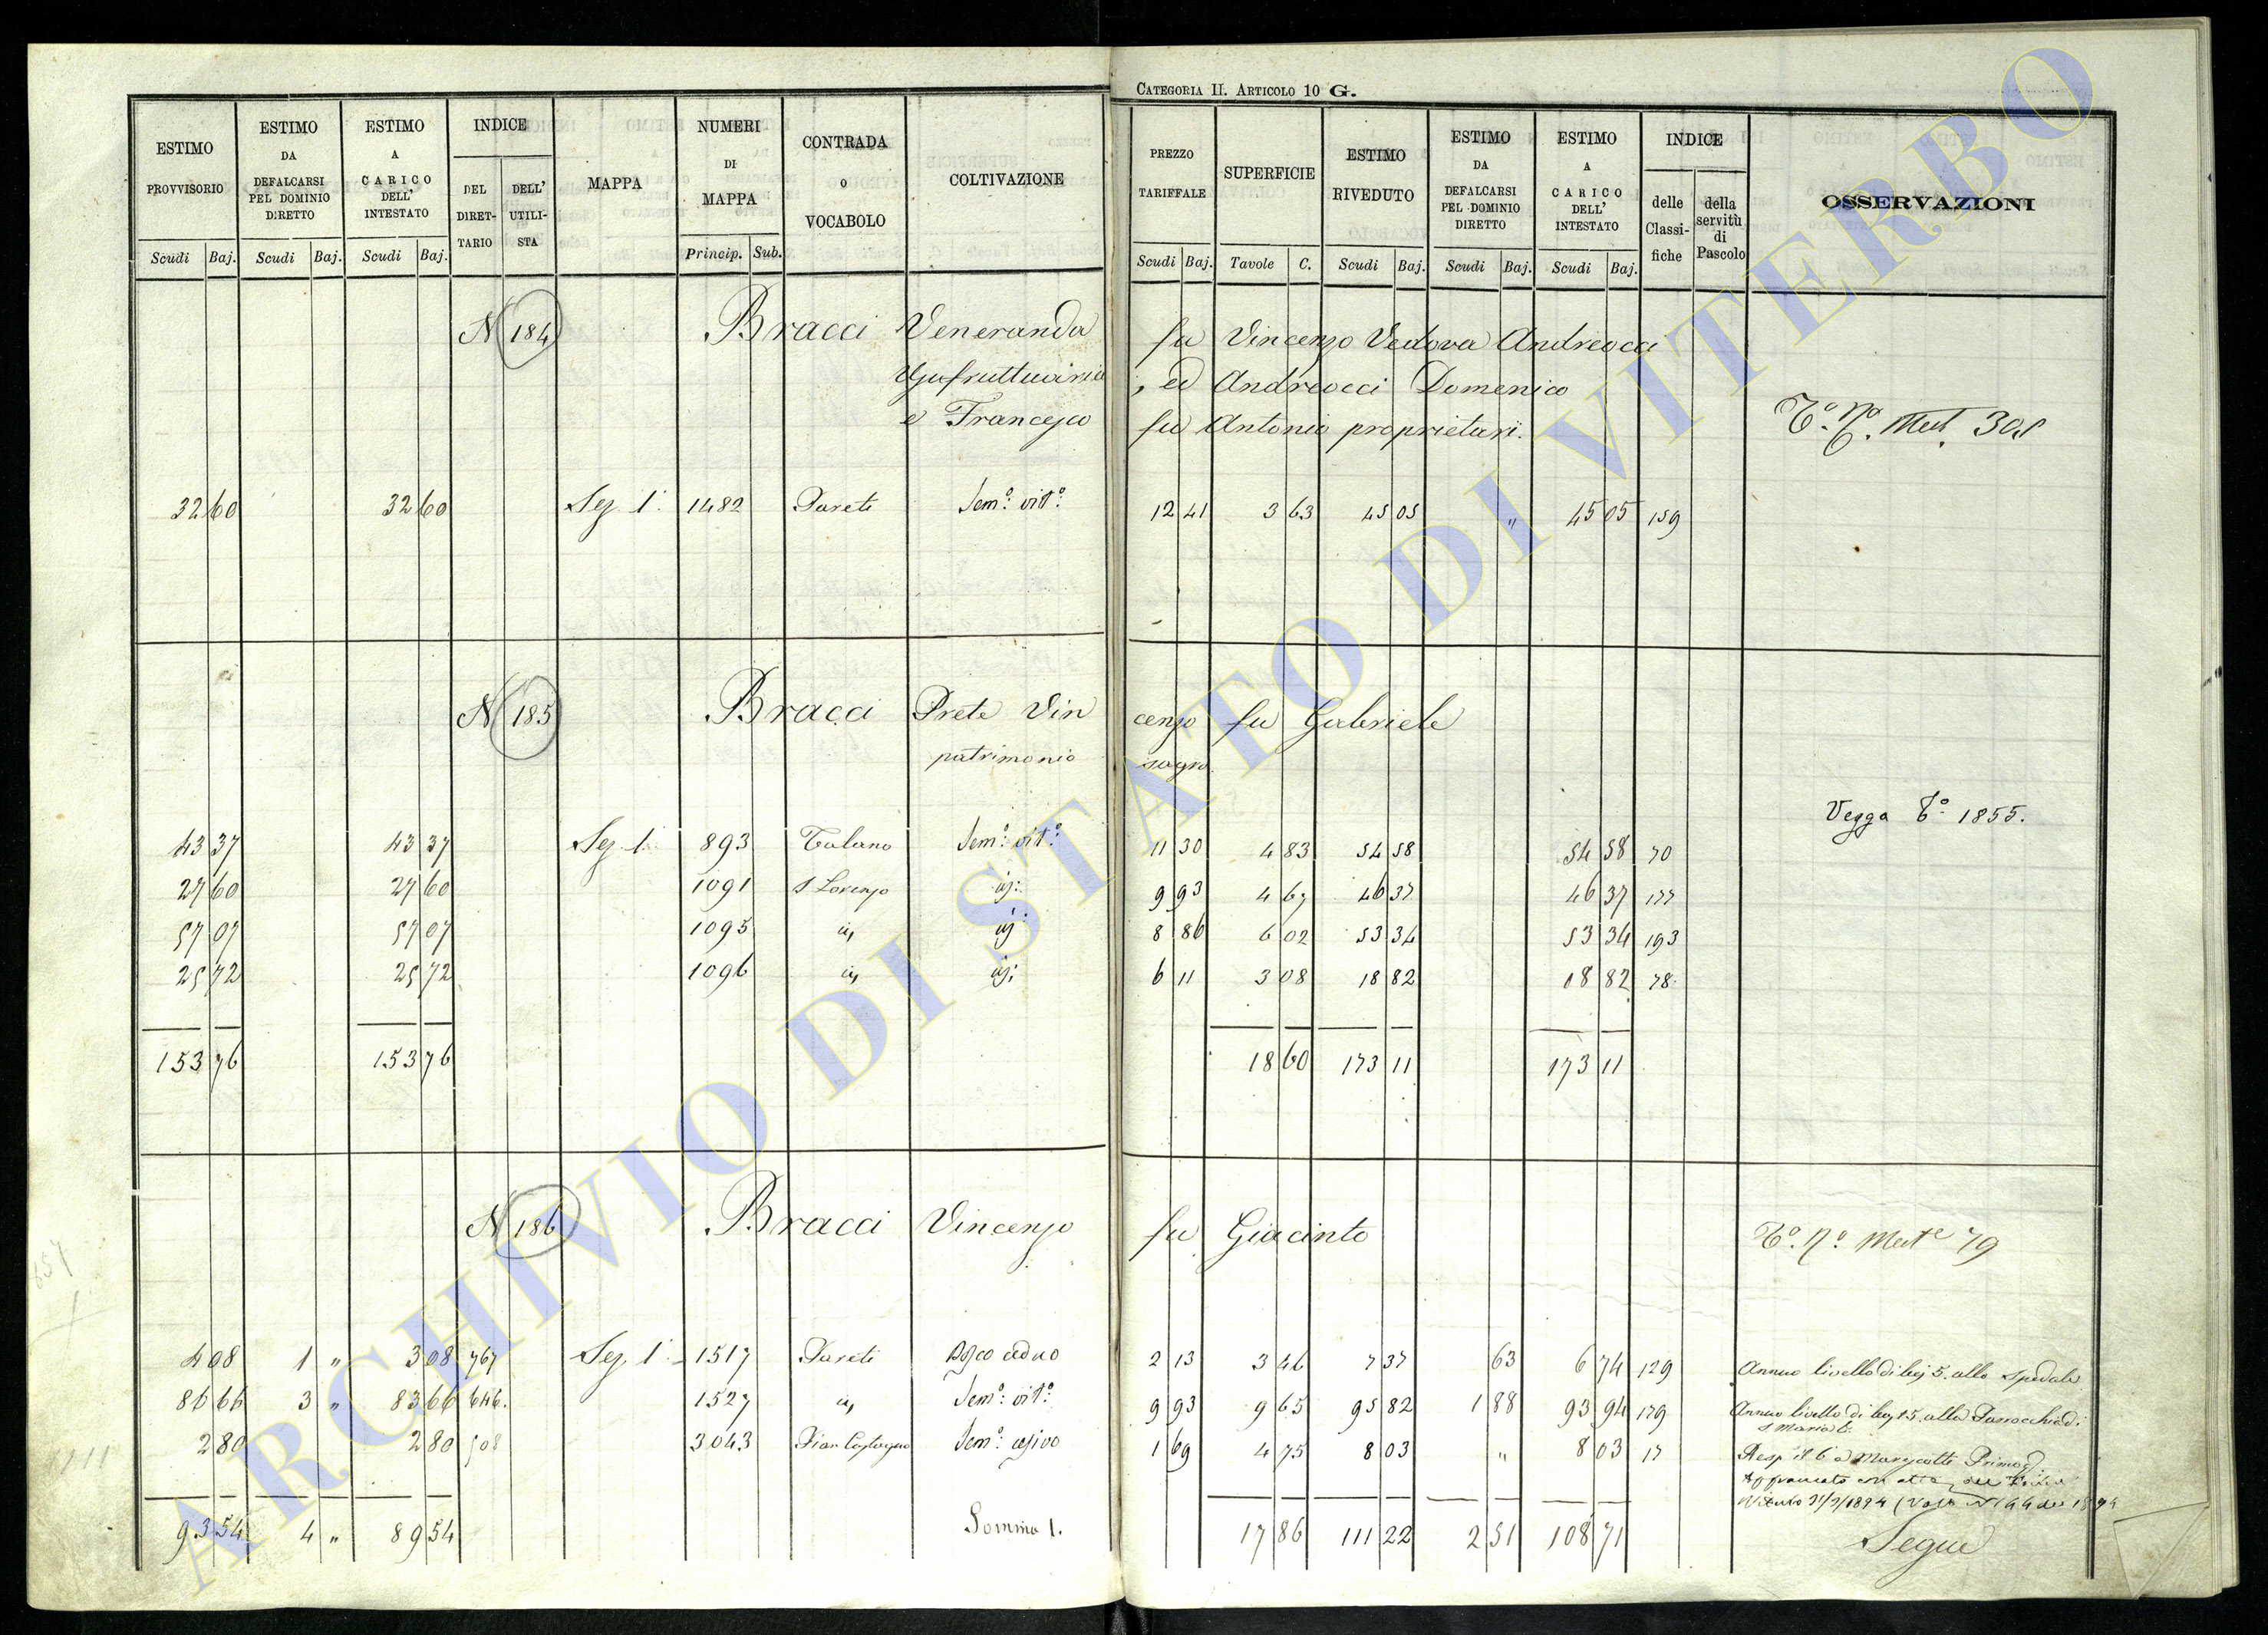 CATEGORIA II. ARTICOLO 10 G.
ESTIMO PROVVISORIO Scudi Baj.
ESTIMO DA DEFALCARSI PEL DOMINIO DIRETTO Scudi Baj.
ESTIMO A CARICO DELL' INTESTATO Scudi Baj.
INDICE DEL DIRET-TARIO DELL' UTILI-STA
MAPPA
NUMERI DI MAPPA Princip. Sub.
CONTRADA O VOCABOLO
COLTIVAZIONE
PREZZO TARIFFALE Scudi Baj.
SUPERFICIE Tavole C.
ESTIMO RIVEDUTO Scudi Baj.
ESTIMO DA DEFALCARSI PEL DOMINIO DIRETTO Scudi Baj.
ESTIMO A CARICO DELL' INTESTATO Scudi Baj.
INDICE delle Classi-fiche della servitù di Pascolo
OSSERVAZIONI
N 184 Bracci Veneranda fu Vincenzo Vedova Andreocci
Usufruttuaria, ed Andreocci Domenico
e Francesco fu Antonio proprietari.
32 60 32 60 Sez. 1. 1482 Pareti Sem.º vit.º 12 41 3 63 45 05 " 45 05 159
N 185 Bracci Prete Vincenzo fu Gabriele
patrimonio sagro
Vegga T.º 1855.
43 37 43 37 Sez. 1. 893 Talano Sem.º vit.º 11 30 4 83 54 58 54 58 70
27 60 27 60 1091 S Lorenzo id: 9 93 4 67 46 37 46 37 177
57 07 57 07 1095 id, id: 8 86 6 02 53 34 53 34 193
25 72 25 72 1096 id, id: 6 11 3 08 18 82 18 82 78
153 76 153 76 18 60 173 11 173 11
N 186 Bracci Vincenzo fu Giacinto T.º N.º Mut.e 79
4 08 1 " 3 08 767 Sez. 1. 1517 Pareti Bosco ceduo 2 13 3 46 7 37 63 6 74 129 Annuo livello di baj 5. allo Spedale
86 66 3 " 83 66 646. 1527 id, Sem.º vit.º 9 93 9 65 95 82 1 88 93 94 179 Annuo livello di baj 15. alla Parrocchia di
S Maria
2 80 2 80 508 3043 Pian Castagno Sem.º 1 69 4 75 8 03 " 8 03 17
93 54 4 " 89 54 Somma 1. 17 86 111 22 2 51 108 71 Segue
ARCHIVIO DI STATO DI VITERBO